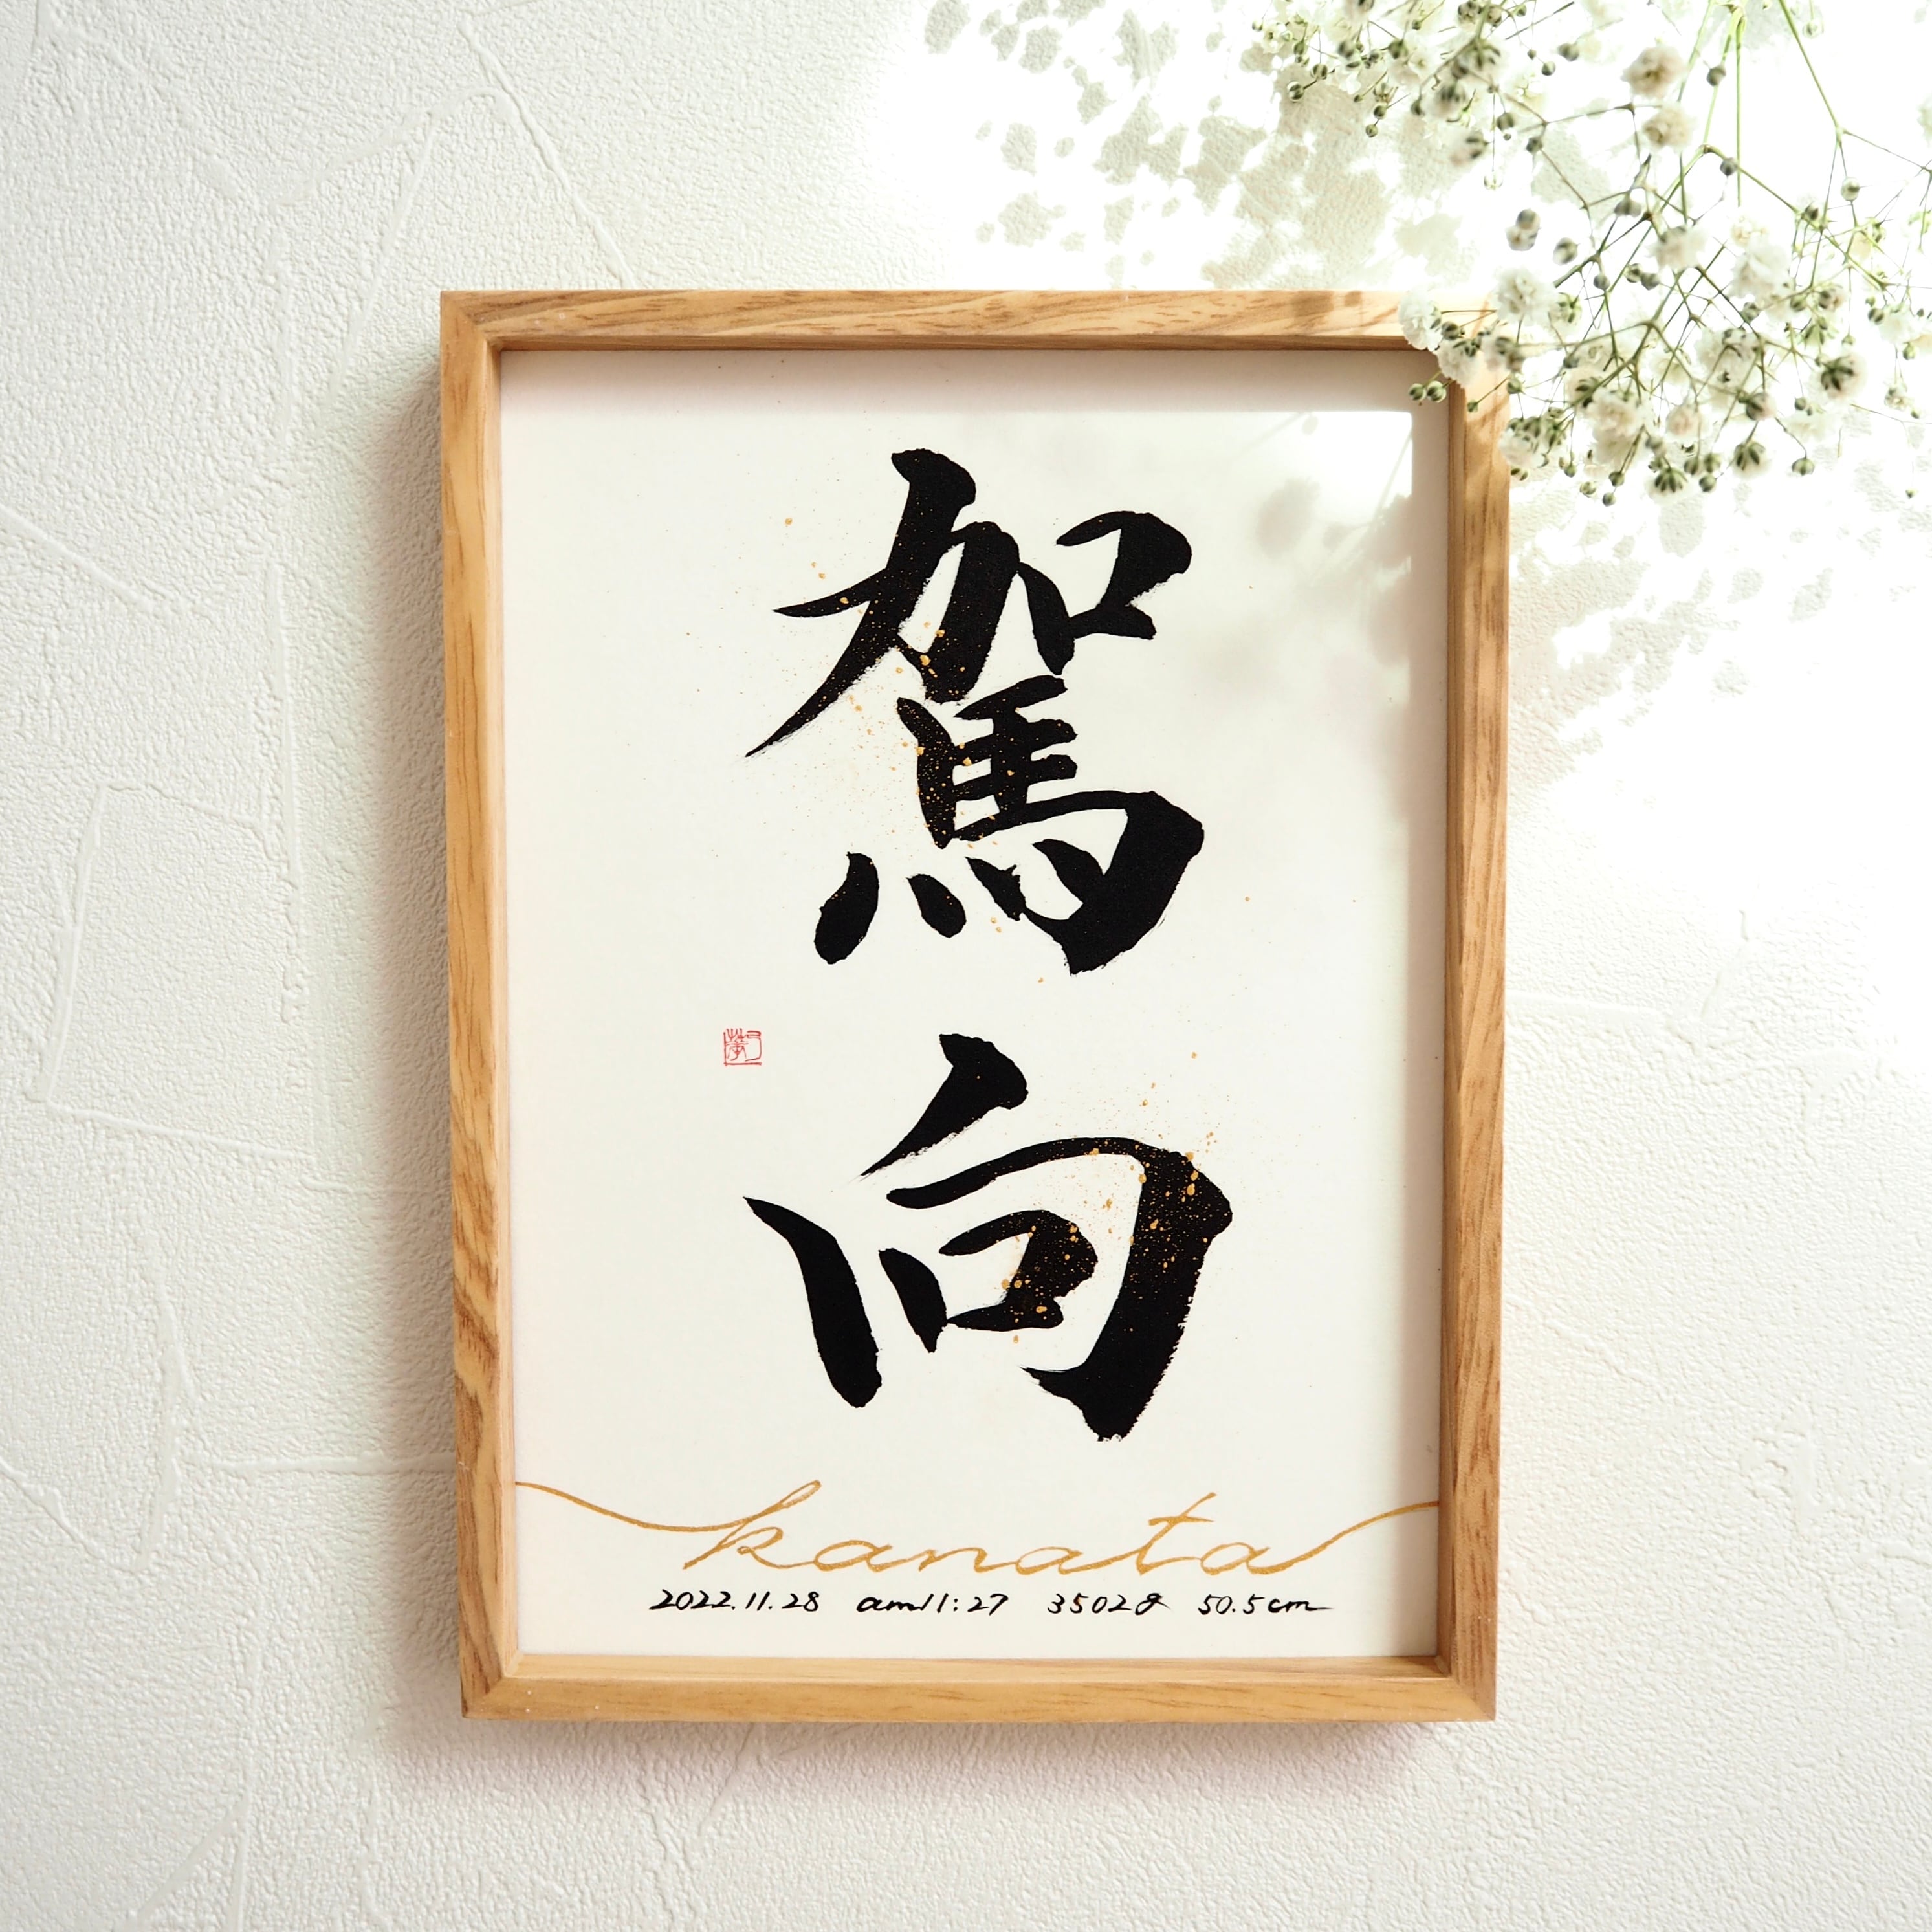 駕向
kanata
2022.11.28 am11:27 3502g 50.5cm